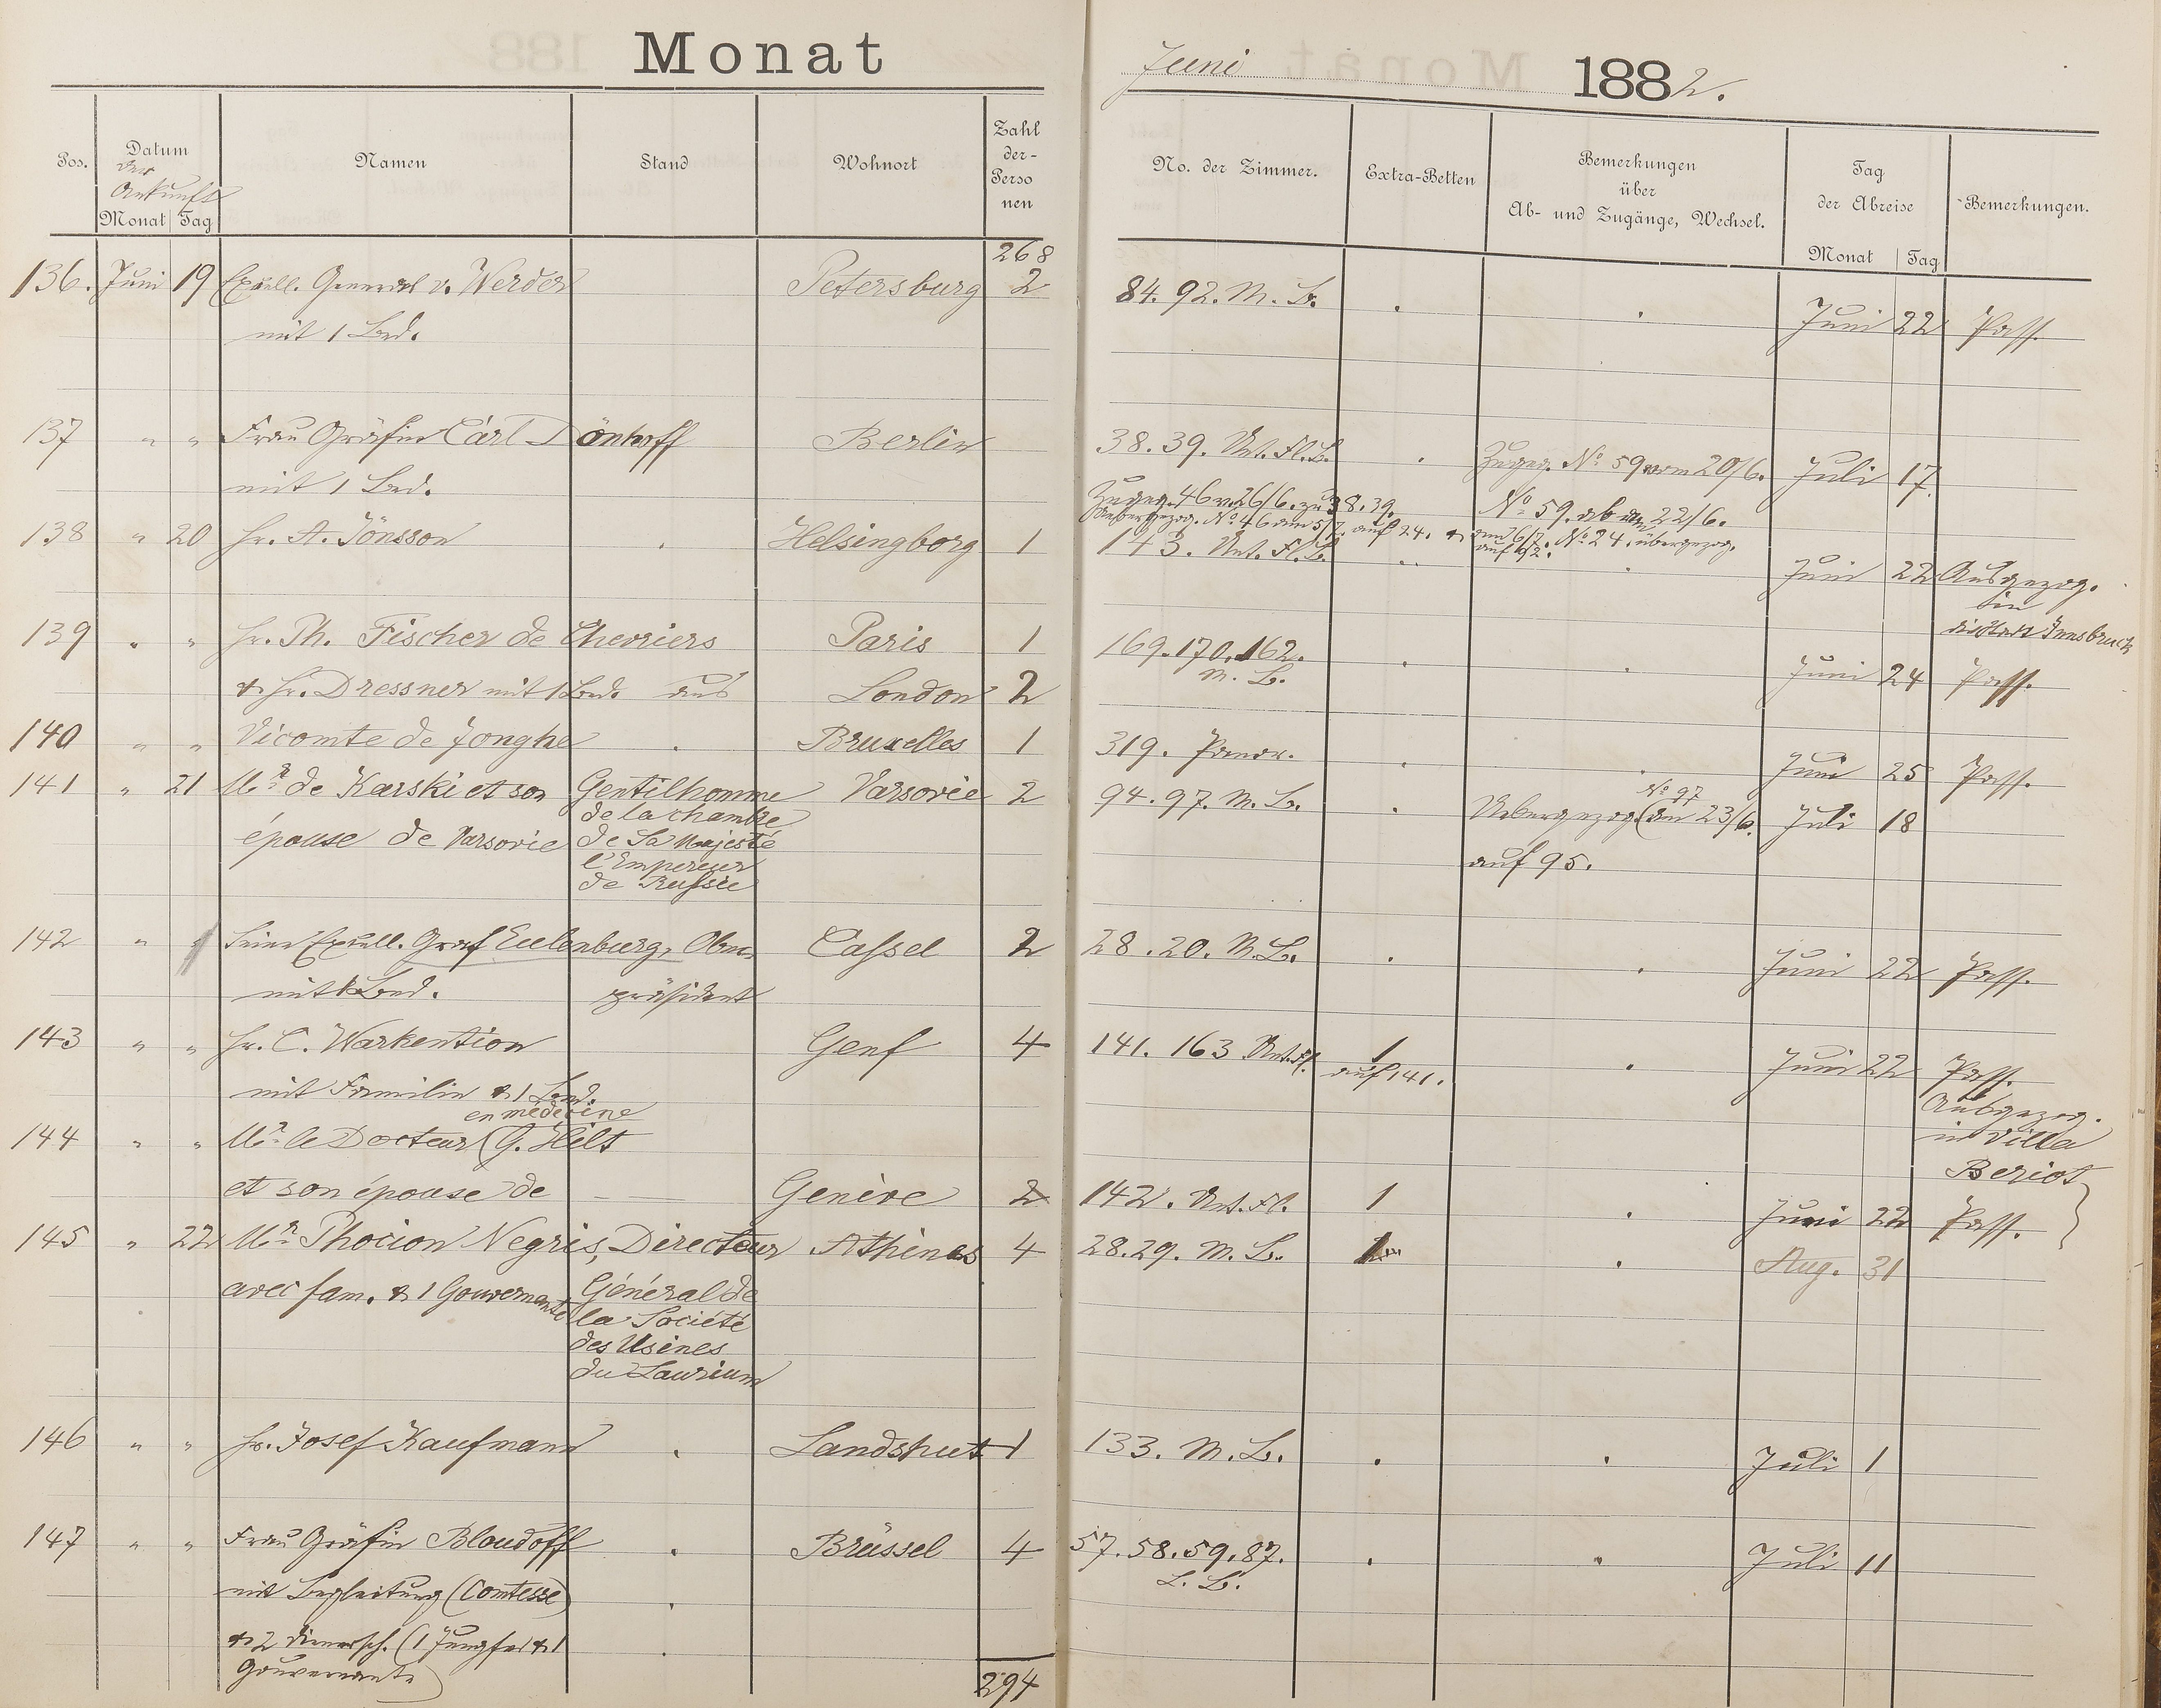 Monat
Juni 1882.
Pos.
Datum
der
Ankunft
Monat Tag
Namen
Stand
Wohnort
Zahl
der-
Perso
nen
No. der Zimmer.
Extra-Betten
Bemerkungen
über
Ab- und Zugänge, Wechsel.
Tag
der Abreise
Monat Tag
Bemerkungen.
268
136. Juni 19 Excell. General v. Werder Petersburg 2 84. 92. M. B. . . Juni 22 Pass.
mit 1 Bed.
137 " " Frau Gräfin Carl Dönhoff Berlin 38. 39. Unt. Fl. B. . Zugeg. No 59 vom 20/6. Juli 17.
mit 1 Bed.
Zugeg. 46 v. 26/6. zu 38. 39. No 59. ab am 22/6.
Uebergezog. No 46 am 5/7. auf 24. & am 6/7. No 24. übergezog.
auf 92.
138 " 20 Hr. A. Jönsson . Helsingborg 1 143. Unt. Fl. B. .. . Juni 22 Ausgezog.
in
die Stadt Innsbruck
139 " " Hr. Th. Fischer de Chevriers Paris 1 169. 170. 162. . . Juni 24 Pass.
M. B.
& Hr. Dressner mit 1 Bed. aus London 2
140 " " Vicomte de Jonghe . Bruxelles 1 319. Panor. . . Juni 25 Pass.
141 " 21 Mr. de Karski et son Gentilhomme Varsovie 2 94. 97. M. B. . Uebergezog. (No 97 am 23/6. Juli 18
épouse de Varsovie de la chambre
de Sa Majesté
l'Empereur
de Russie
auf 95.
142 " " Seine Excell. Graf Eulenburg, Ober- Cassel 2 28. 20. M. B. . . Juni 22 Pass.
mit 1 Bed. präsident
143 " " Hr. C. Warkention Genf 4 141. 163 Unt. Fl. 1 . Juni 22 Pass.
auf 141.
mit Familie & 1 Bed.
Ausgezog.
in Villa
Beriot
en médecine
144 " " Mr. le Docteur (G. Hilt
et son épouse de Genève 2 142. Unt. Fl. 1 . Juni 22 Pass.
145 " 22 Mr. Phocion Negris, Directeur Athènes 4 28. 29. M. B. . Aug. 31
avec fam. & 1 Gouvernante Général de
la Société
des Usines
du Laurium
146 " " Hr. Josef Kaufmann . Landshut 1 133. M. B. . . Juli 1
147 " " Frau Gräfin Bloudoff . Brüssel 4 57. 58. 59. 87. . " Juli 11
L. B.
mit Begleitung (Comtesse) .
& 2 Dienersch. (1 Jungfer & 1 .
Gouvernante)
294